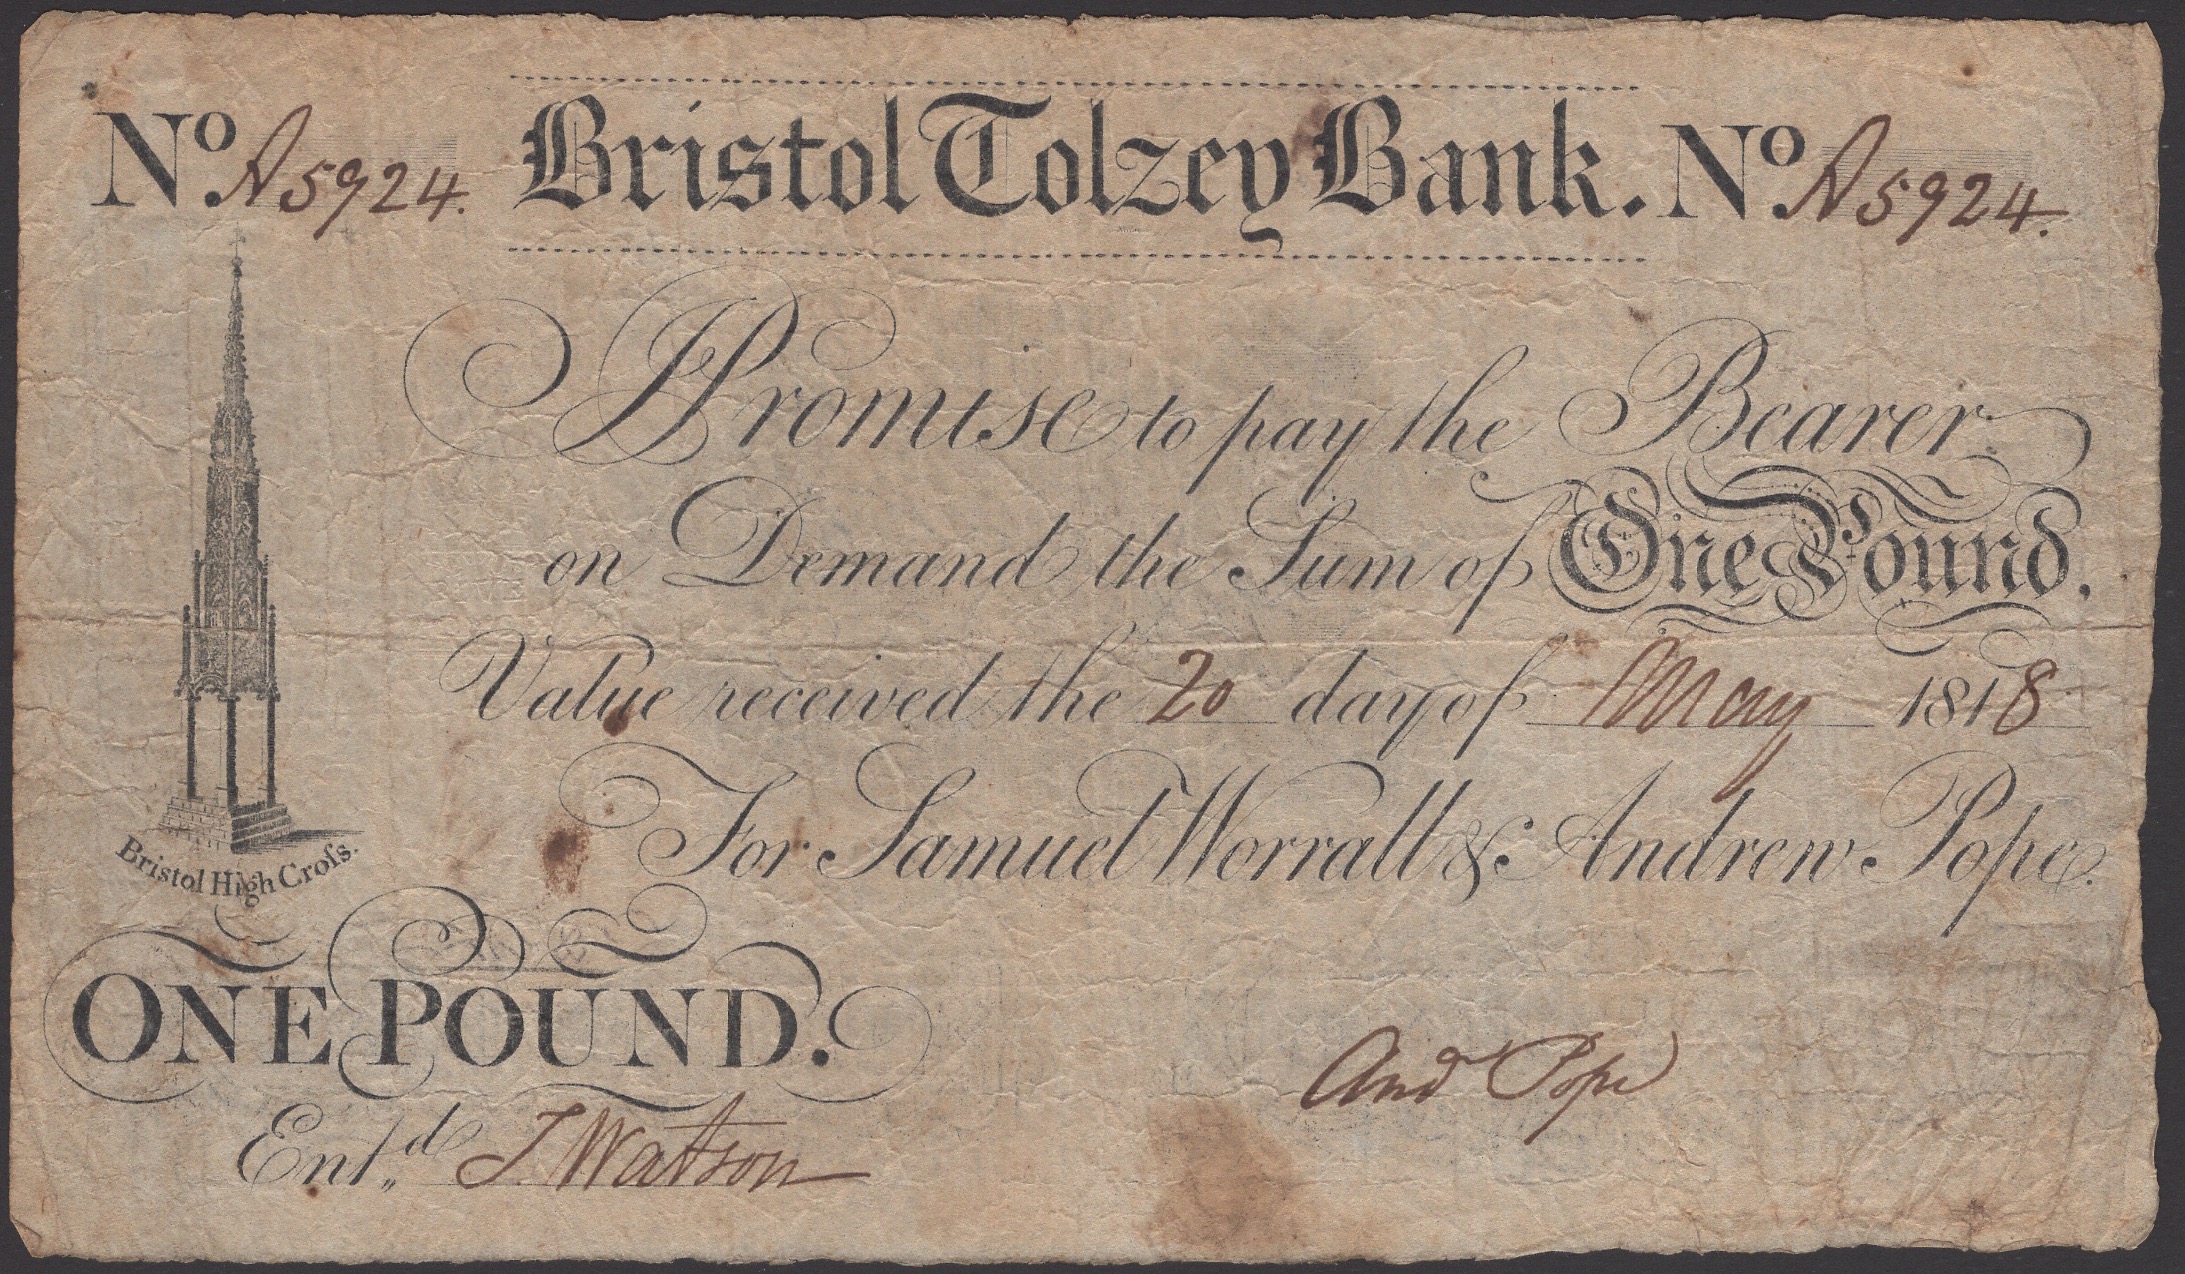 No. A5924. Bristol Tolzey Bank. No. A5924.
I Promise to pay the Bearer
on Demand the Sum of One Pound.
Value received the 20 day of May 1818
For Samuel Worrall & Andrew Pope.
Bristol High Croſs.
ONE POUND.
And Pope
Ent,,d J Watson